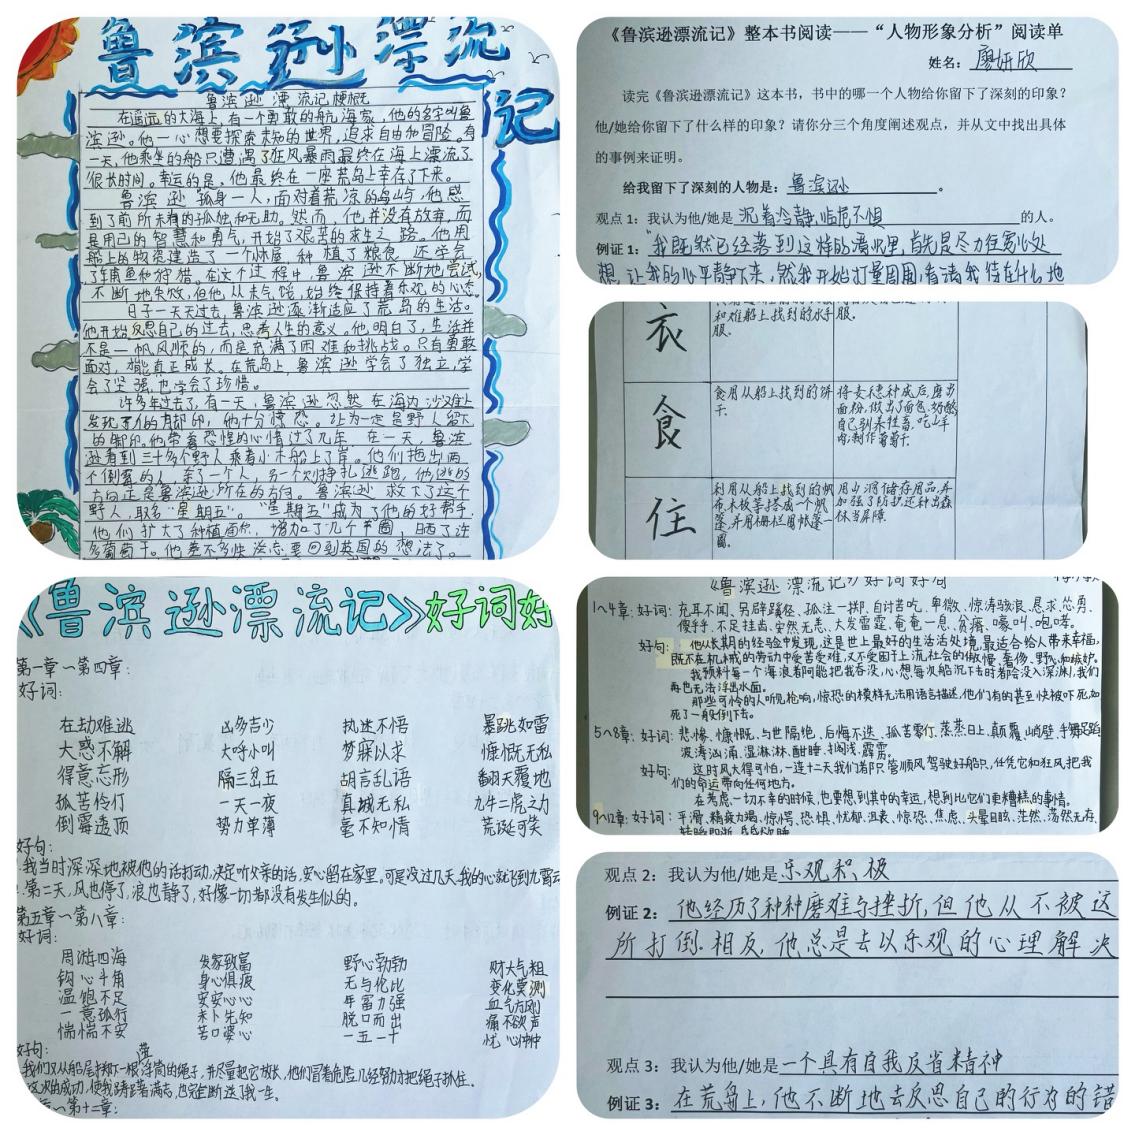 鲁滨逊漂流记
鲁滨逊漂流记梗概
在遥远的大海上,有一个勇敢的航海家,他的名字叫鲁
滨逊。他一心想要探索未知的世界,追求自由和冒险。有
一天,他乘坐的船只遭遇了狂风暴雨最终在海上漂流了
很长时间。幸运的是,他最终在一座荒岛上幸存了下来。
鲁滨逊孤身一人,面对着荒凉的岛屿,他感
到了前所未有的孤独和无助。然而,他并没有放弃,而
是用自己的智慧和勇气,开始了艰苦的求生之路。他用
船上的物资建造了一个小屋,种植了粮食,还学会
了捕鱼和狩猎。在这个过程中,鲁滨逊不断地尝试,
不断地失败,但他,从未气馁,始终保持着乐观的心态。
日子一天天过去,鲁滨逊逐渐适应了荒岛的生活。
他开始反思自己的过去,思考人生的意义。他明白了,生活并
不是一帆风顺的,而是充满了困难和挑战。只有勇敢
面对,才能真正成长。在荒岛上,鲁滨逊学会了独立,学
会了坚强,也学会了珍惜。
许多年过去了,有一天,鲁滨逊忽然在海边沙滩上
发现了人的脚印,他十分惊恐。认为一定是野人留下
的脚印。他带着恐惧的心情过了几年,在一天,鲁滨
逊看到三十多个野人乘着小木船上了岸。他们拖出两
个倒霉的人,杀了一个人,另一个则挣扎逃跑,他逃的
方向正是鲁滨逊所在的方向。鲁滨逊救下了这个
野人,取名“星期五”。“星期五”成为了他的好帮手,
他们扩大了种植面积,增加了几个羊圈,晒了许
多葡萄干。他差不多快淡忘要回到英国的想法了。
《鲁滨逊漂流记》整本书阅读——“人物形象分析”阅读单
姓名:廖妍欣
读完《鲁滨逊漂流记》这本书,书中的哪一个人物给你留下了深刻的印象?
他/她给你留下了什么样的印象?请你分三个角度阐述观点,并从文中找出具体
的事例来证明。
给我留下了深刻的人物是:鲁滨逊。
观点1:我认为他/她是沉着冷静,临危不惧的人。
例证1:“我既然已经落到这样的境况里,首先是尽力往宽心处
想,让我的心平静下来,然我开始打量周围,看清我待在什么地
衣
和难船上找到的水手
服。
服。
食
食用从船上找到的饼
干。
将麦穗种成后,磨出
面粉,做出了面包、奶酪
自己驯养牲畜,吃山羊
肉;制作葡萄干。
住
利用从船上找到的帆
布木板等搭成一个帐
篷,并用栅栏围帐篷一
圈。
用山洞储存用品,并
加强了防护,还种出森
林当屏障。
《鲁滨逊漂流记》好词好
第一章~第四章:
好词:
在劫难逃 凶多吉少 执迷不悟 暴跳如雷
大惑不解 大呼小叫 梦寐以求 慷慨无私
得意忘形 隔三岔五 胡言乱语 翻天覆地
孤苦伶仃 一天一夜 真诚无私 九牛二虎之力
倒霉透顶 势力单薄 毫不知情 荒诞可笑
好句:
我当时深深地被他的话打动,决定听父亲的话,安心留在家里。可是没过几天,我的心就飞到九霄云
第二天,风也停了,浪也静了,好像一切都没有发生似的。
第五章~第八章:
好词:
周游四海 发家致富 野心勃勃 财大气粗
钩心斗角 身心俱疲 无与伦比 变化莫测
温饱不足 安安心心 年富力强 血气方刚
一意孤行 未卜先知 脱口而出 痛不欲声
惴惴不安 苦口婆心 一五一十 忧心忡忡
好句:
我们又从船尾扔下一根浮筒的绳子,并尽量把它放长,他们冒着危险几经努力把绳子抓住。
这次的成功,使我踌躇满志,也完全断送了我一生。
~第十二章:
《鲁滨逊漂流记》好词好句
1~4章:好词:充耳不闻、另辟蹊径、孤注一掷、自讨苦吃、卑微、惊涛骇浪、恳求、怂恿、
傻乎乎、不足挂齿、安然无恙、大发雷霆、奄奄一息、贫瘠、嚎叫、咆哮。
好句:他从长期的经验中发现,这是世上最好的生活处境,最适合给人带来幸福,
既不在机械的劳动中受苦受难,又不受困于上流社会的傲慢、奢侈、野心和嫉妒。
我预料每一个海浪都可能把我吞没,心想每次船沉下去时都会没入深渊,我们
再也无法浮出水面。
那些可怜的人听见枪响,惊恐的模样无法用语言描述,他们有的甚至快被吓死,如
死了一般倒下去。
5~8章:好词:悲惨、慷慨、与世隔绝、后悔不迭、孤苦零仃、蒸蒸日上、颠覆、峭壁、手舞足蹈
波涛汹涌、湿淋淋、酣睡、搁浅、霹雳。
好句:这时风大得可怕,一连十二天我们都只管顺风驾驶好船只,任凭它和狂风把我
们的命运带向任何地方。
在考虑一切不幸的时候,也要想到其中的幸运,想到比它们更糟糕的事情。
9~12章:好词:平滑、精疲力竭、惊愕、恐惧、忧郁、沮丧、惊恐、焦虑、头晕目眩、茫然、荡然无存、
观点2:我认为他/她是乐观积极
例证2:他经历了种种磨难与挫折,但他从不被这
所打倒。相反,他总是去以乐观的心理解决
观点3:我认为他/她是一个具有自我反省精神
例证3:在荒岛上,他不断地去反思自己的行为的错